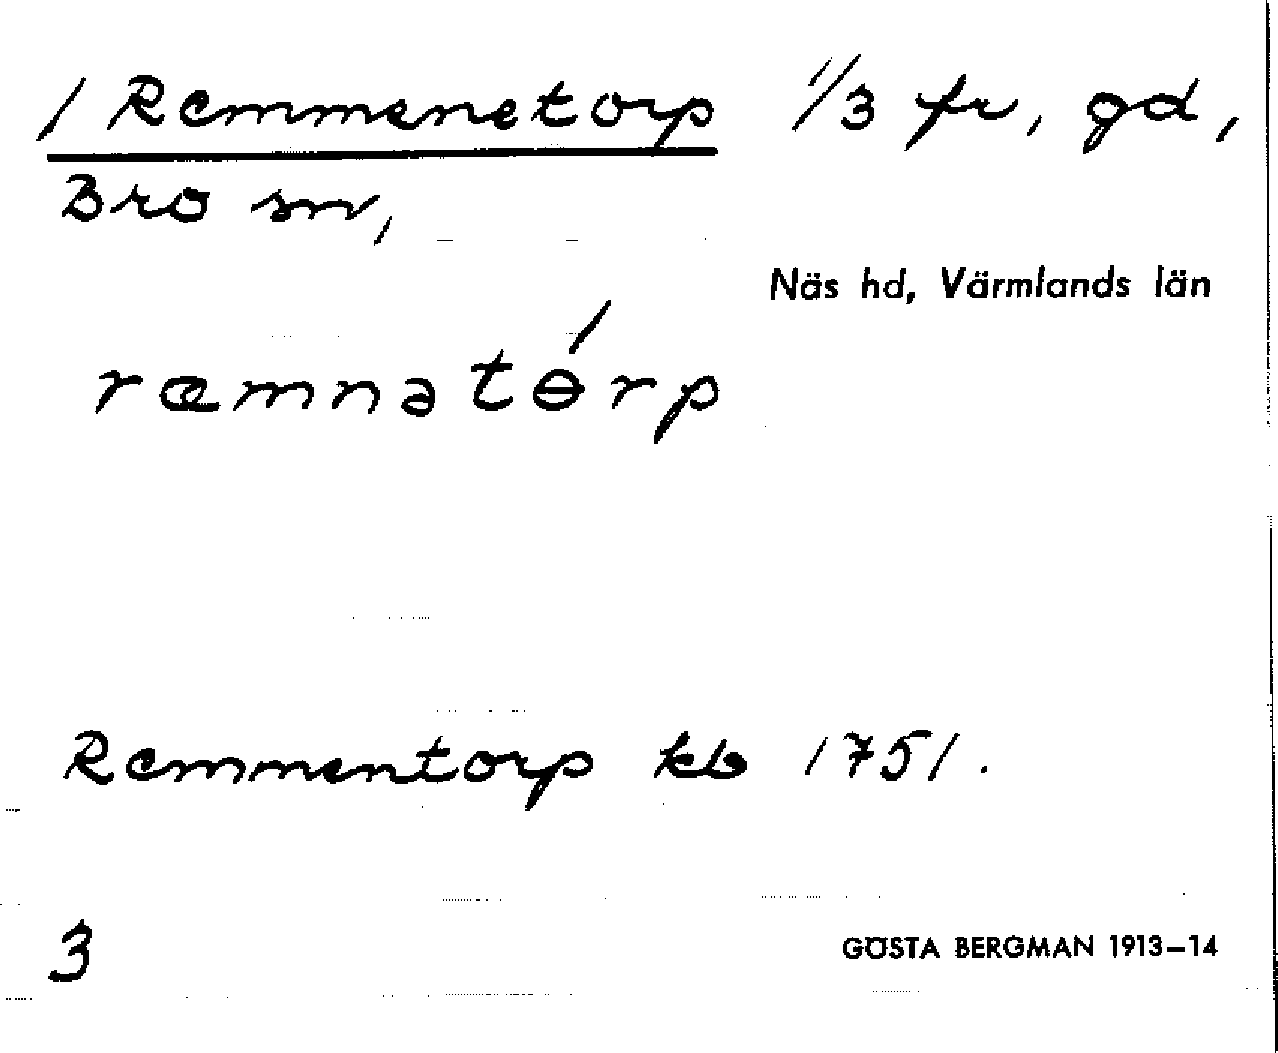 / Remmenetorp 1/3 fr, gd,
Bro sn,
Näs hd, Värmlands län
ræmnətɵ́rp
Remmentorp kb 1751.
3
GÖSTA BERGMAN 1913–14